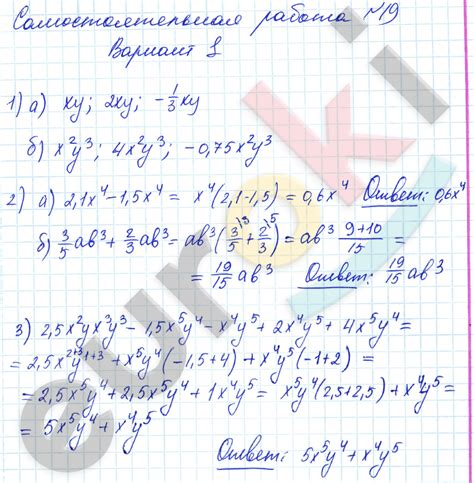 Самостоятельная работа №19
Вариант 1
1) а) xy; 2xy; -1/3xy
б) x²y³; 4x²y³; -0,75x²y³
2) а) 2,1x⁴-1,5x⁴ = x⁴(2,1-1,5) = 0,6x⁴ Ответ: 0,6x⁴
б) 3/5 ab³ + 2/3 ab³ = ab³(3/5 \³ + 2/3 \⁵) = ab³ (9+10)/15 =
= 19/15 ab³ Ответ: 19/15 ab³
3) 2,5x²yx³y³ - 1,5x⁵y⁴ - x⁴y⁵ + 2x⁴y⁵ + 4x⁵y⁴ =
= 2,5x²⁺³y¹⁺³ + x⁵y⁴(-1,5+4) + x⁴y⁵(-1+2) =
= 2,5x⁵y⁴ + 2,5x⁵y⁴ + 1x⁴y⁵ = x⁵y⁴(2,5+2,5) + x⁴y⁵ =
= 5x⁵y⁴ + x⁴y⁵
Ответ: 5x⁵y⁴ + x⁴y⁵
euroki